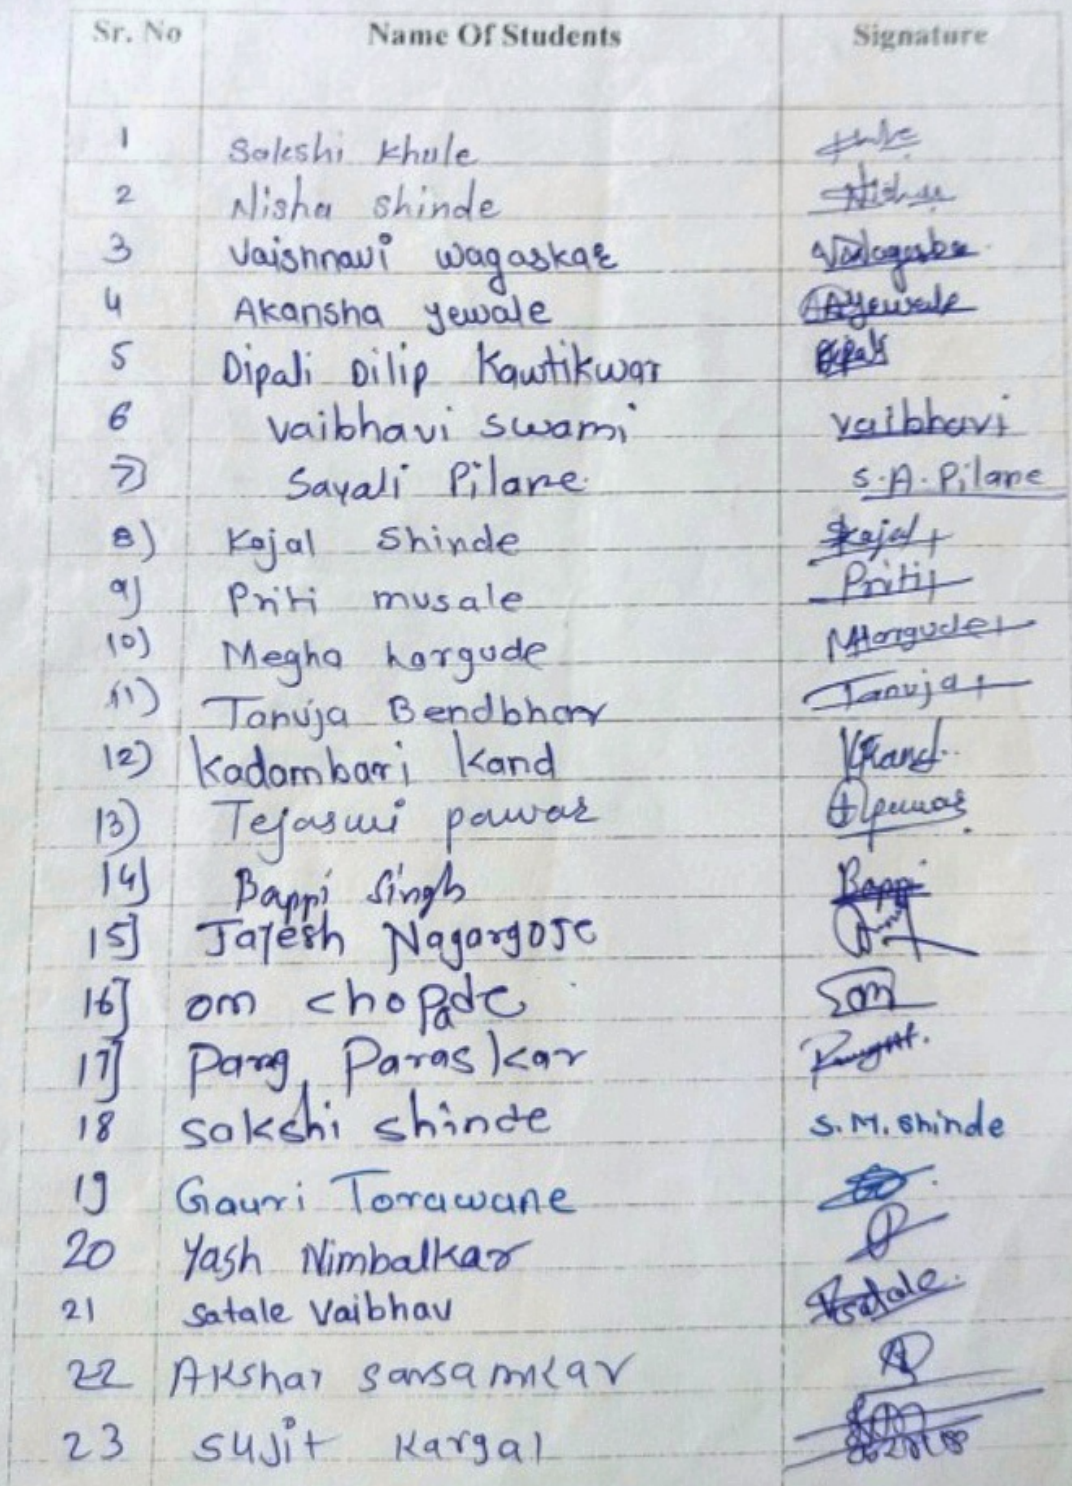 Sr. No Name Of Students Signature
1 Sakshi Khule Khule
2 Nisha Shinde Nisha
3 Vaishnavi wagaskar
4 Akansha yewale AAyewale
5 Dipali Dilip Kawtikwar Dipali
6 vaibhavi swami vaibhavi
7) Sayali Pilane S.A.Pilane
8) Kajal Shinde Kajal
9) Priti musale Priti
10) Megha hargude MHargude
11) Tanuja Bendbhar Tanuja
12) Kadambari Kand KKand
13) Tejaswi pawar pawar
14] Bappi Singh Bappi
15] Jayesh Nagargoje
16] om chopade
17] Parag Paraskar
18 sakshi shinde S.M. Shinde
19 Gauri Torawane
20 Yash Nimbalkar
21 Satale Vaibhav Vsatale
22 Akshay
23 Sujit Kargal